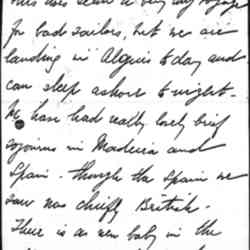 for bad sailors, but we are
landing in Algiers today and
can sleep ashore to-night.
We have had really lovely brief
sojourns in Madeira and
Spain - though the Spain we
saw was chiefly British.
There is a new baby in the